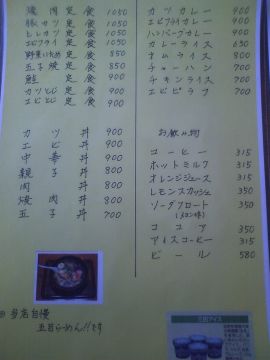 焼肉定食 1050
豚カツ定食 1050
ヒレカツ定食 1050
エビフライ定食 1050
野菜いため定食 850
玉子焼定食 850
鮭定食 900
カツとじ定食 900
エビとじ定食 900
カツ丼 900
エビ丼 900
中華丼 900
親子丼 800
肉丼 800
焼肉丼 900
玉子丼 700
当店自慢
五目らーめん!!です
カツカレー 900
エビフライカレー 900
ハンバーグカレー 900
カレーライス 650
オムライス 800
チャーハン 700
チキンライス 700
エビピラフ 700
お飲み物
コーヒー 315
ホットミルク 315
オレンジジュース 315
レモンスカッシュ 350
ソーダフロート 350
(メロン味)
ココア 350
アイスコーヒー 315
ビール 580